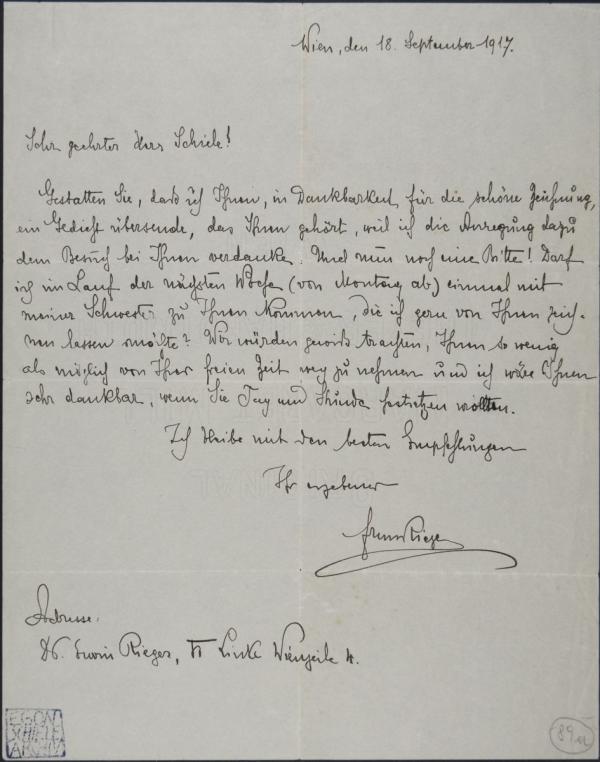 Wien, den 18. September 1917.
Sehr geehrter Herr Schiele!
Gestatten Sie, daß ich Ihnen, in Dankbarkeit für die schöne Zeichnung,
ein Gedicht übersende, das Ihnen gehört, weil ich die Anregung dazu
dem Besuch bei Ihnen verdanke. Und nun noch eine Bitte! Darf
ich im Lauf der nächsten Woche (von Montag ab) einmal mit
meiner Schwester zu Ihnen kommen, die ich gern von Ihnen zeich-
nen lassen möchte? Wir würden gewiß trachten, Ihnen so wenig
als möglich von Ihrer freien Zeit weg zu nehmen und ich wäre Ihnen
sehr dankbar, wenn Sie Tag und Stunde festsetzen wollten.
Ich bleibe mit den besten Empfehlungen
Ihr ergebener
Erwin Rieger
Adresse:
Dr. Erwin Rieger, VI Linke Wienzeile 4.
EGON
SCHIELE
ARCHIV
89a